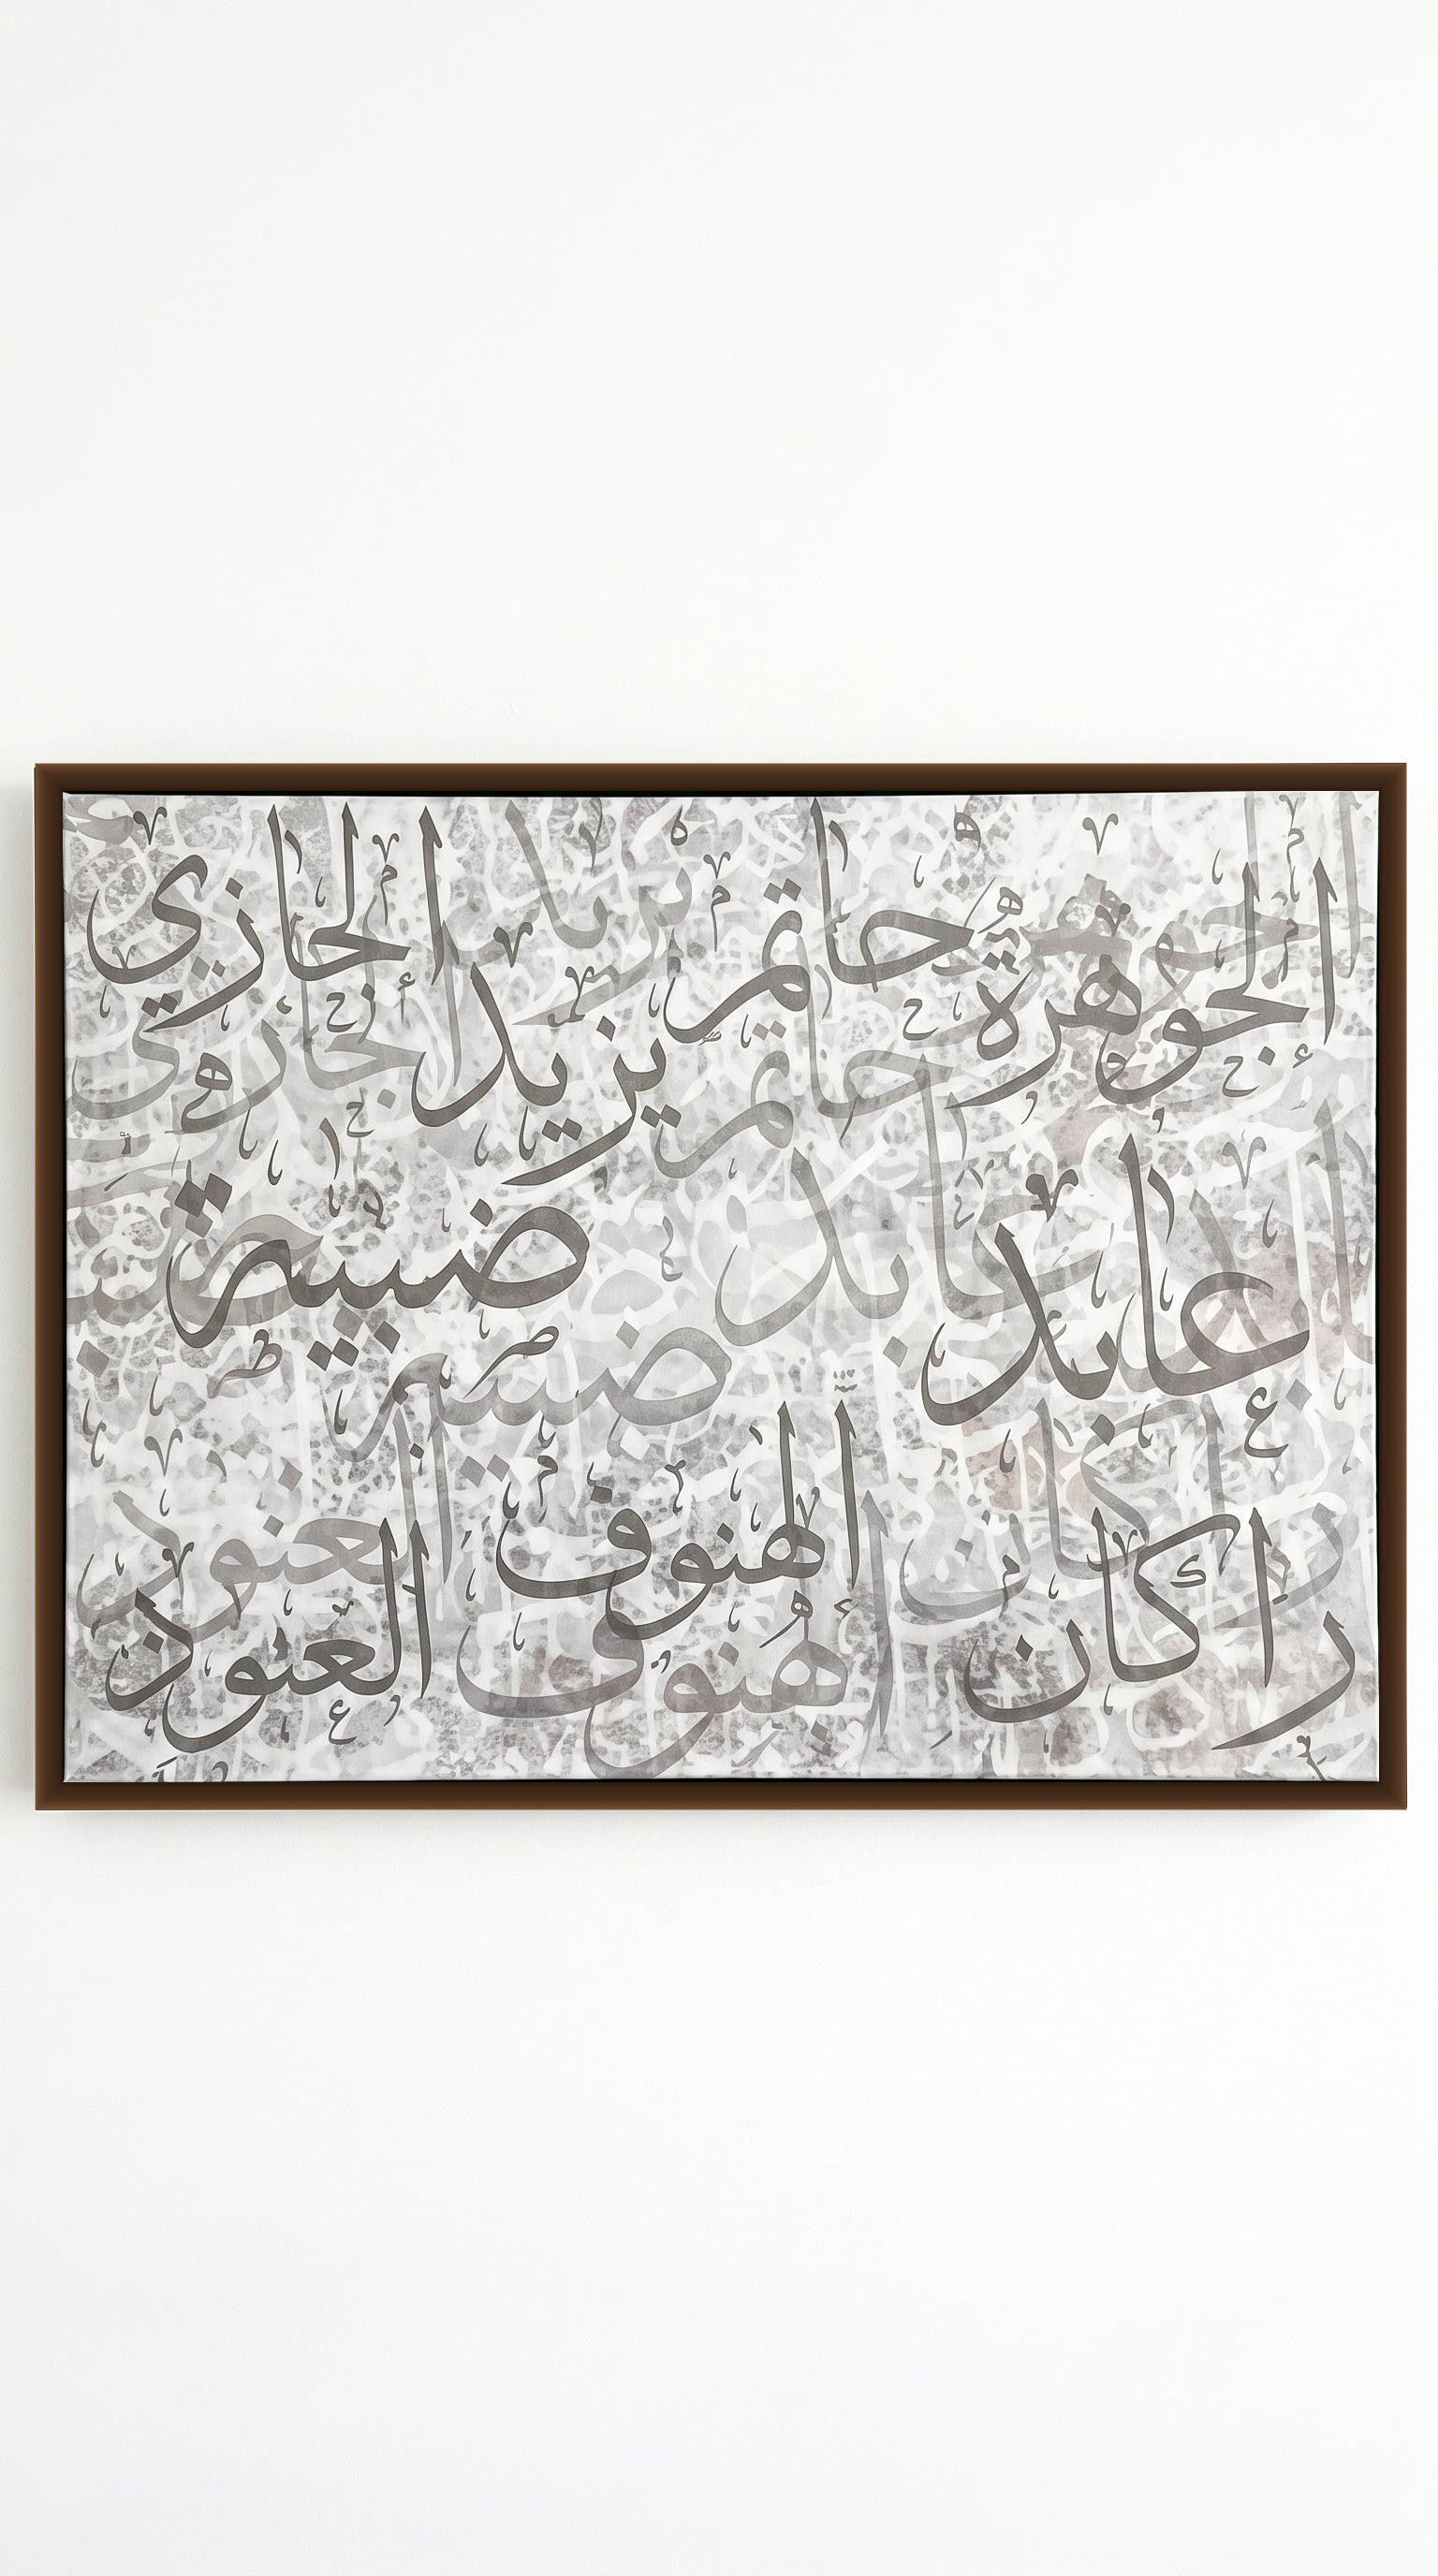 الجوهرة حاتم يزيد الجازي
عابد ضبية
راكان الهنوف العنود